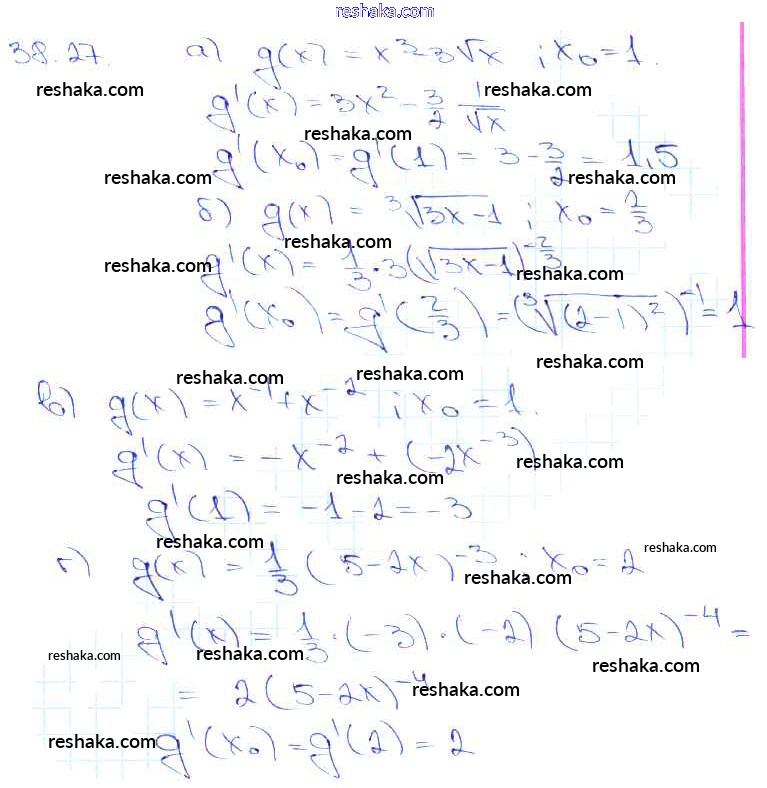 reshaka.com
38.27. а) g(x) = x³-3√x ; x₀ = 1.
reshaka.com reshaka.com
g'(x) = 3x² - 3/2 1/√x
reshaka.com
g'(x₀) = g'(1) = 3 - 3/2 = 1,5
reshaka.com reshaka.com
б) g(x) = ³√(3x-1) ; x₀ = 2/3
reshaka.com
g'(x) = 1/3 · 3(√(3x-1))^(-2/3)
reshaka.com reshaka.com
g'(x₀) = g'(2/3) = (³√((2-1)²))⁻¹ = 1
reshaka.com
reshaka.com reshaka.com
в) g(x) = x⁻¹ + x⁻² ; x₀ = 1.
g'(x) = -x⁻² + (-2x⁻³)
reshaka.com reshaka.com
g'(1) = -1 - 2 = -3
reshaka.com reshaka.com
г) g(x) = 1/3 (5-2x)⁻³ ; x₀ = 2
reshaka.com
g'(x) = 1/3 · (-3) · (-2) (5-2x)⁻⁴ =
reshaka.com reshaka.com reshaka.com
= 2(5-2x)⁻⁴
reshaka.com
g'(x₀) = g'(2) = 2
reshaka.com reshaka.com